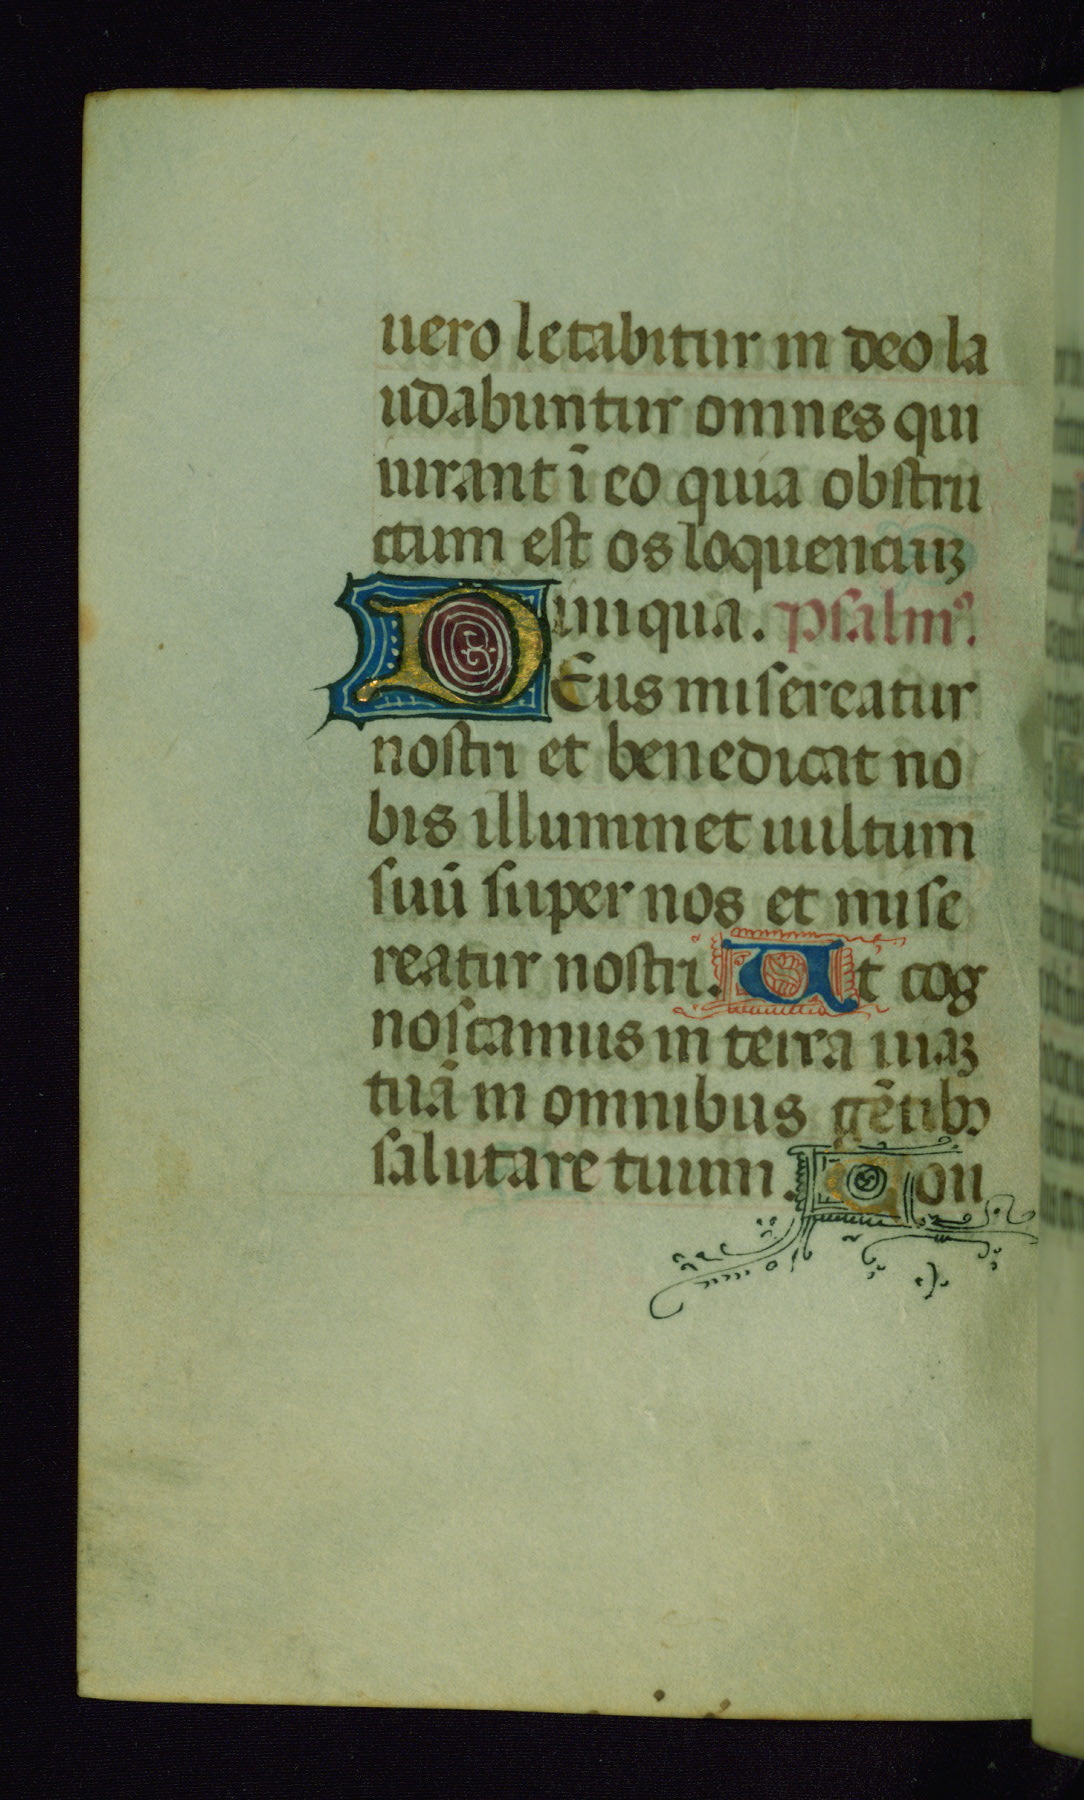 uero letabitur in deo la
udabuntur omnes qui
iurant ī eo quia obstru
ctum est os loquenciuꝫ
iniqua. psalmꝰ.
DEus misereatur
nostri et benedicat no
bis illuminet uultum
suū super nos et mise
reatur nostri. Ut cog
noscamus in terra uiaꝫ
tuā in omnibus gētibꝫ
salutare tuum. Con